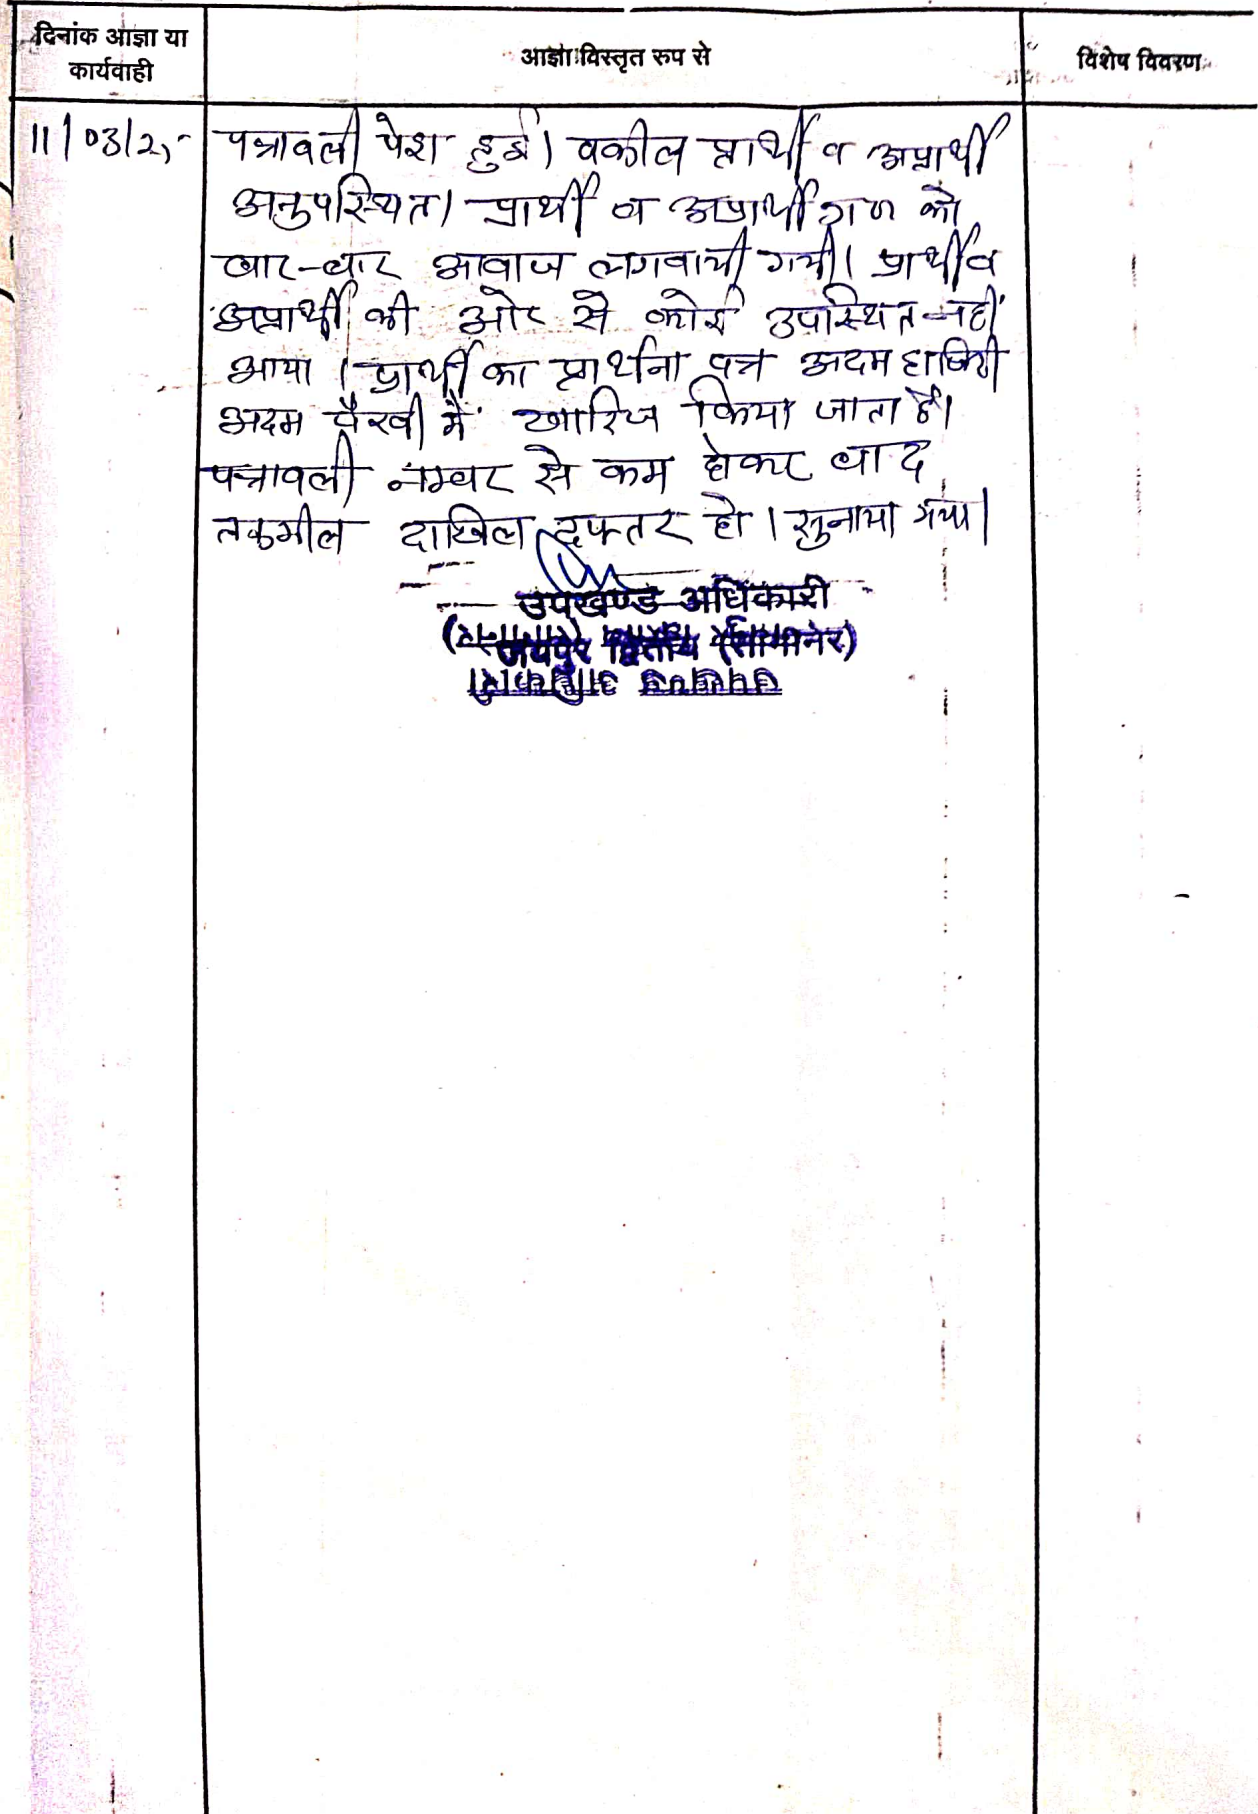 दिनांक आज्ञा या
कार्यवाही
आज्ञा विस्तृत रुप से
विशेष विवरण
11/03/2
पत्रावली पेश हुई। वकील प्रार्थी व अप्रार्थी
अनुपस्थित। प्रार्थी व अप्रार्थीगण को
बार-बार आवाज लगवायी गयी। प्रार्थी व
अप्रार्थी की ओर से कोई उपस्थित नहीं
आया। प्रार्थी का प्रार्थना पत्र अदम हाजिरी
अदम पैरवी में खारिज किया जाता है।
पत्रावली नम्बर से कम होकर बाद
तकमील दाखिल दफ्तर हो। सुनाया गया।
उपखण्ड अधिकारी
जयपुर द्वितीय (सांगानेर)
उपखण्ड अधिकारी